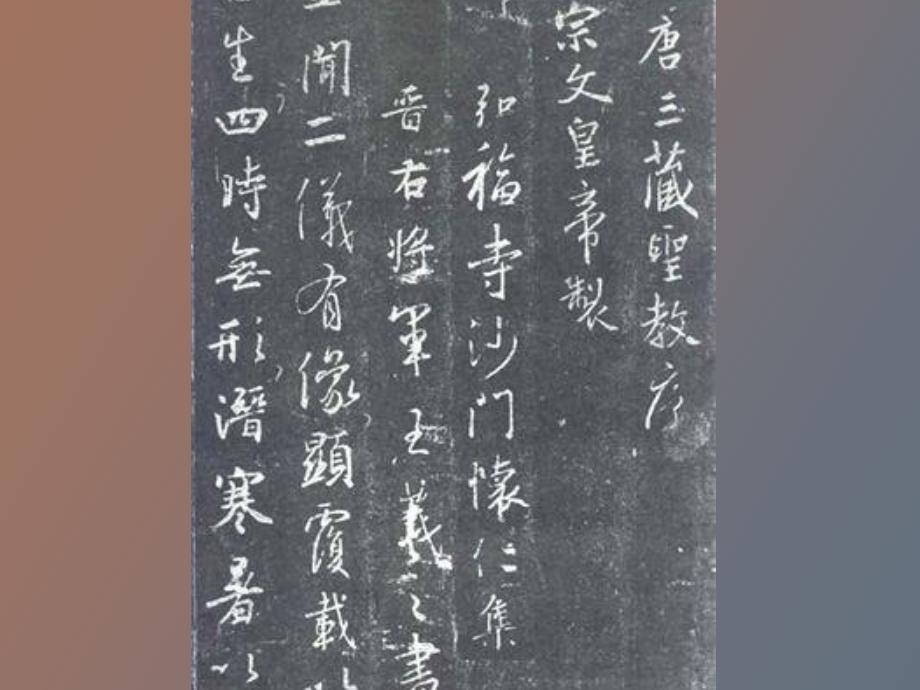 唐三藏聖教序
宗文皇帝製
弘福寺沙門懷仁集
晉右將軍王羲之書
聞二儀有像顯覆載
生四時無形潛寒暑以